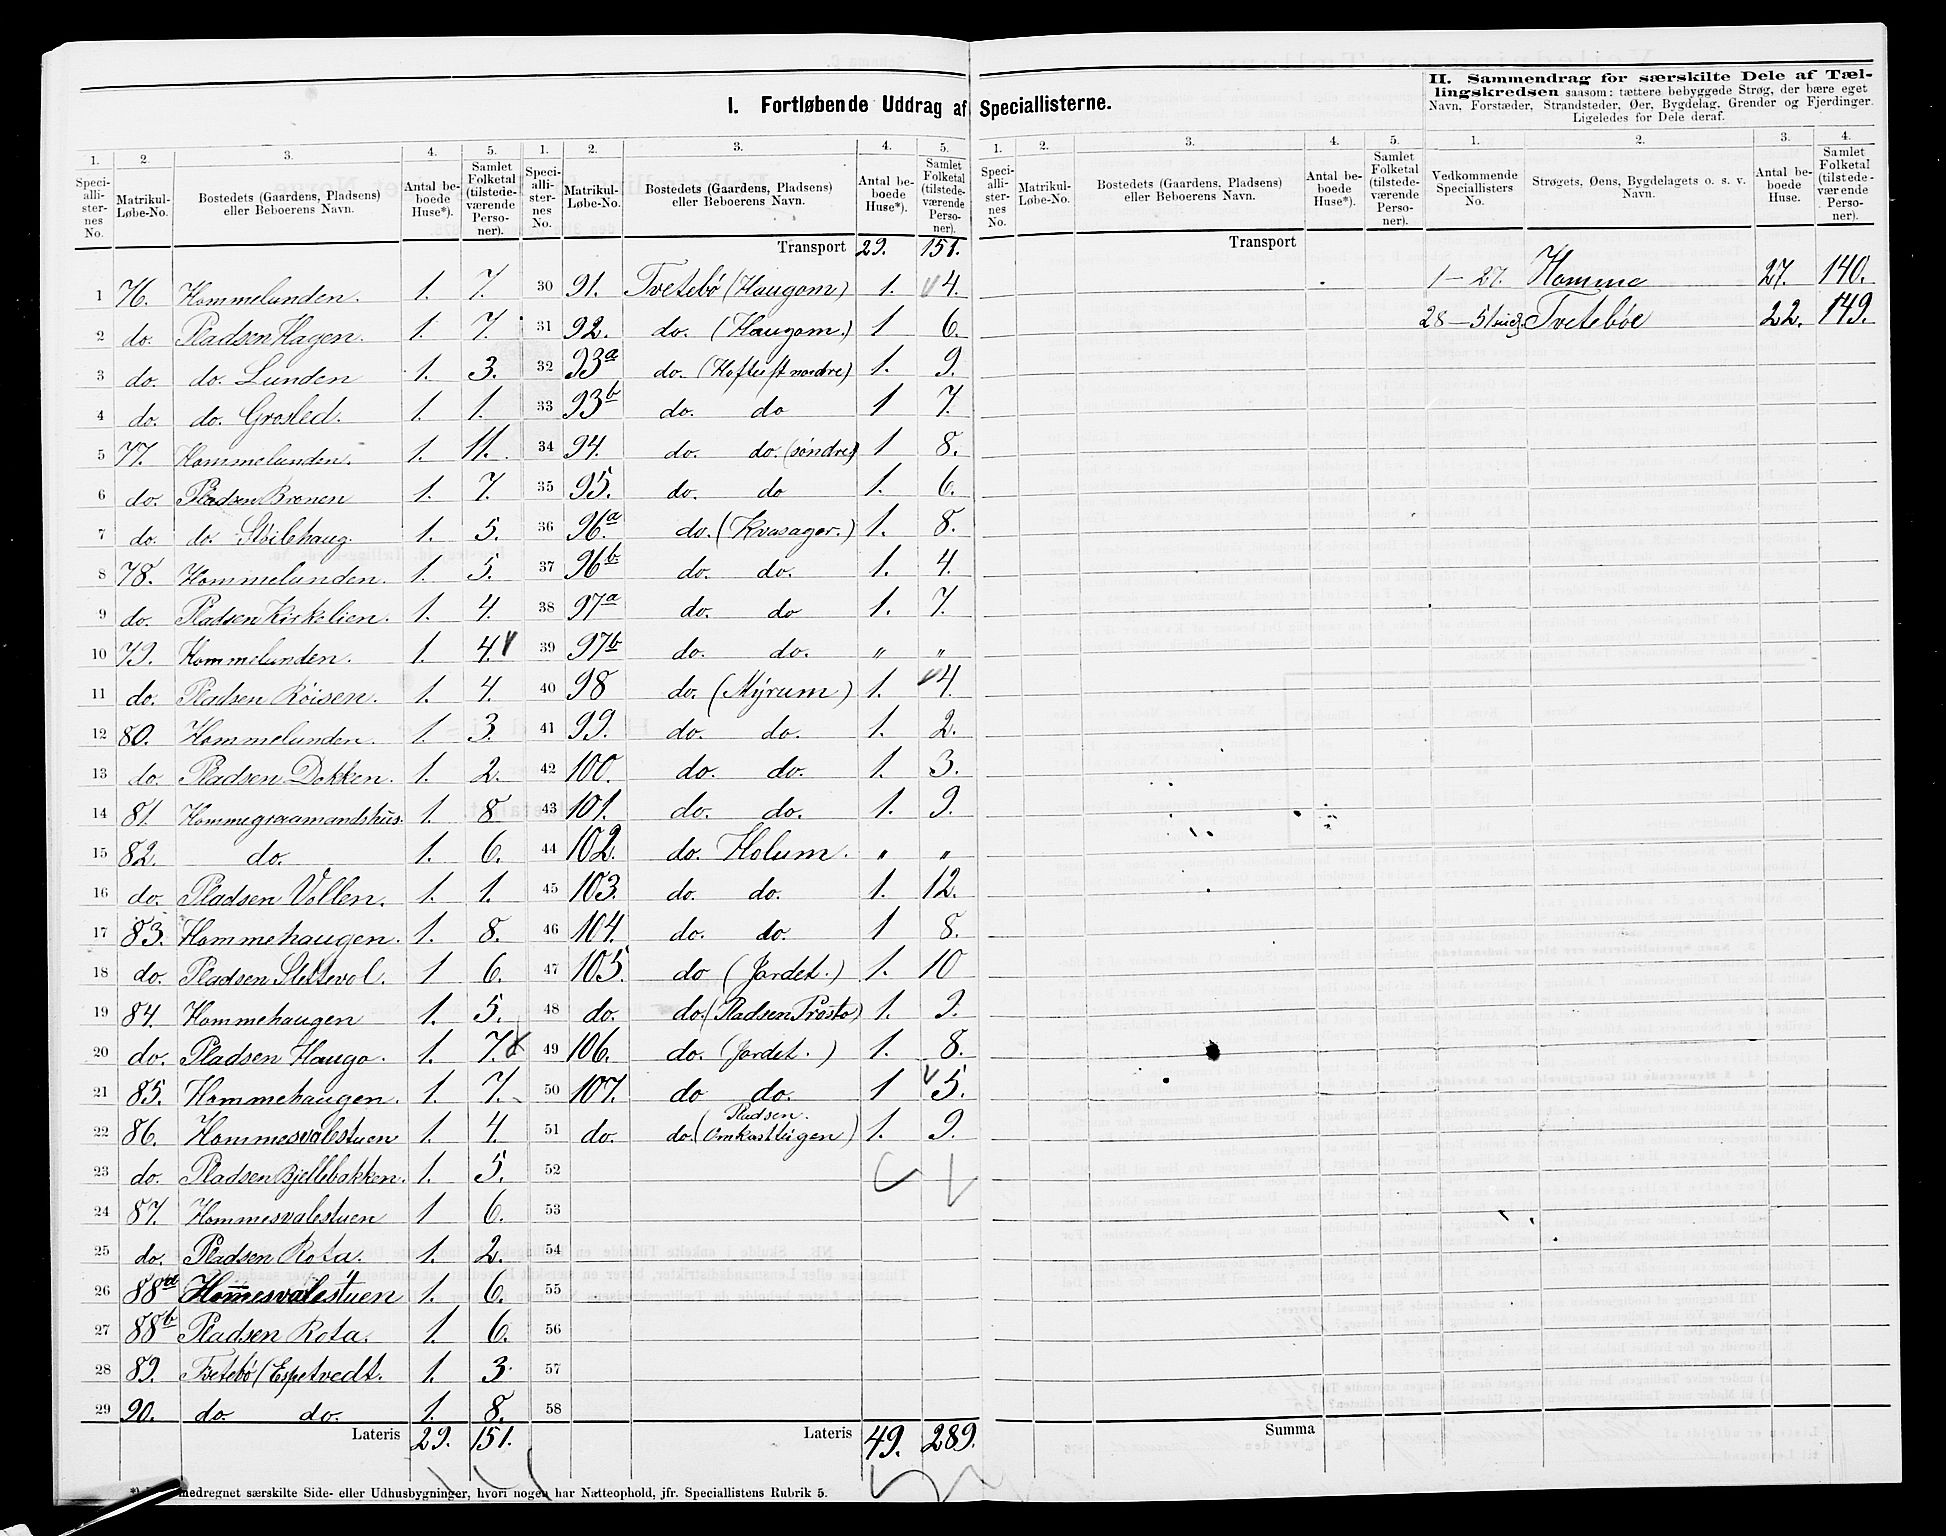 I. Fortløbende Uddrag af Speciallisterne.
II. Sammendrag for særskilte Dele af Tæl-
lingskredsen saasom: tættere bebyggede Strøg, der bære eget
Navn, Forstæder, Strandsteder, Øer, Bygdelag, Grender og Fjerdinger.
Ligeledes for Dele deraf.
1. 2. 3. 4. 5. 1. 2. 3. 4. 5. 1. 2. 3. 4. 5. 1. 2. 3. 4.
Speci-alli-ster-nes No. Matrikul-Løbe-No. Bostedets (Gaardens, Pladsens) eller Beboerens Navn. Antal be-boede Huse*). Samlet Folketal (tilstede-værende Perso-ner).
Speci-alli-ster-nes No. Matrikul-Løbe-No. Bostedets (Gaardens, Pladsens) eller Beboerens Navn. Antal be-boede Huse*). Samlet Folketal (tilstede-værende Perso-ner).
Speci-alli-ster-nes No. Matrikul-Løbe-No. Bostedets (Gaardens, Pladsens) eller Beboerens Navn. Antal be-boede Huse*). Samlet Folketal (tilstede-værende Perso-ner).
Vedkommende Speciallisters No. Strøgets, Øens, Bygdelagets o. s. v. Navn. Antal be-boede Huse. Samlet Folketal (tilstede-værende Perso-ner).
1 76. Hommelunden. 1. 7.
2 do. Pladsen Hagen. 1. 7.
3 do. do. Lunden 1. 3.
4 do. do. Grosled. 1. 1.
5 77. Hommelunden. 1. 11.
6 do. Pladsen Brenen 1. 7.
7 do. do. Støilehaug. 1. 5.
8 78. Hommelunden. 1. 5.
9 do. Pladsen Kirkelien. 1. 4.
10 79. Hommelunden. 1. 4.
11 do. Pladsen Röisen. 1. 4.
12 80. Hommelunden. 1. 3.
13 do. Pladsen Dokken. 1. 2.
14 81. Hommegraamandshus. 1. 8
15 82. do. 1. 6.
16 do. Pladsen Vollen. 1. 1.
17 83. Hommehaugen. 1. 8.
18 do. Pladsen Slettevol. 1 6.
19 84. Hommehaugen 1. 5.
20 do. Pladsen Haugo. 1. 7.
21 85. Hommehaugen. 1. 7.
22 86. Hommesvalestuen 1. 4.
23 do. Pladsen Bjellebakken. 1. 5.
24 87. Hommesvalestuen 1 6.
25 do. Pladsen Rota. 1. 2.
26 88a Homesvalestuen 1. 6.
27 88b Pladsen Rota. 1. 6.
28 89. Tvetebö (Espetvedt. 1. 3.
29 90. do. do. 1. 8.
Lateris 29. 151.
Transport 29. 151.
30 91. Tvetebö (Haugom) 1. 4.
31 92. do. (Haugom.) 1 6.
32 93a do. (Hoftuft nordre) 1. 9.
33 93b do. do 1 7.
34 94. do. do. (söndre) 1 8.
35 95. do. do 1. 6.
36 96a do. (Kvasager.) 1. 8.
37 96b do. do. 1. 4.
38 97a do. do 1. 7.
39 97b do. do. " "
40 98 do. (Myrum) 1. 4.
41 99. do. do. 1. 2.
42 100. do. do. 1. 3.
43 101. do. do. 1. 9.
44 102. do. Holum. " "
45 103. do. do. 1. 12.
46 104. do. do. 1 8.
47 105. do (Jordet.) 1. 10
48 do. do. (Pladsen Prosto) 1. 9.
49 106. do. (Jordet.) 1. 8.
50 107. do do. 1 5.
51 do. do. (Pladsen. Omkastteigen) 1. 9.
52
53
54
55
56
57
58
Lateris 49. 289.
Transport
Summa
1 – 27. Homme 27. 140.
28 – 51 Tvetebøe 22. 149.
medregnet særskilte Side- eller Udhusbygninger, hvori nogen har Natteophold, jfr. Speciallistens Rubrik 5.